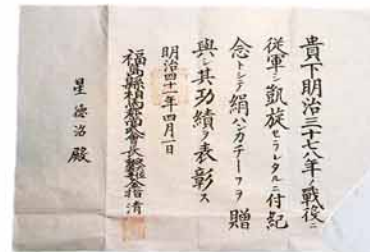 貴下明治三十七八年ノ戦役ニ
従軍シ凱旋セラレタルニ付紀
念トシテ絹ハンカチーフヲ贈
與シ其功績ヲ表彰ス
明治四十一年四月一日
福島縣相馬郡
星德治殿